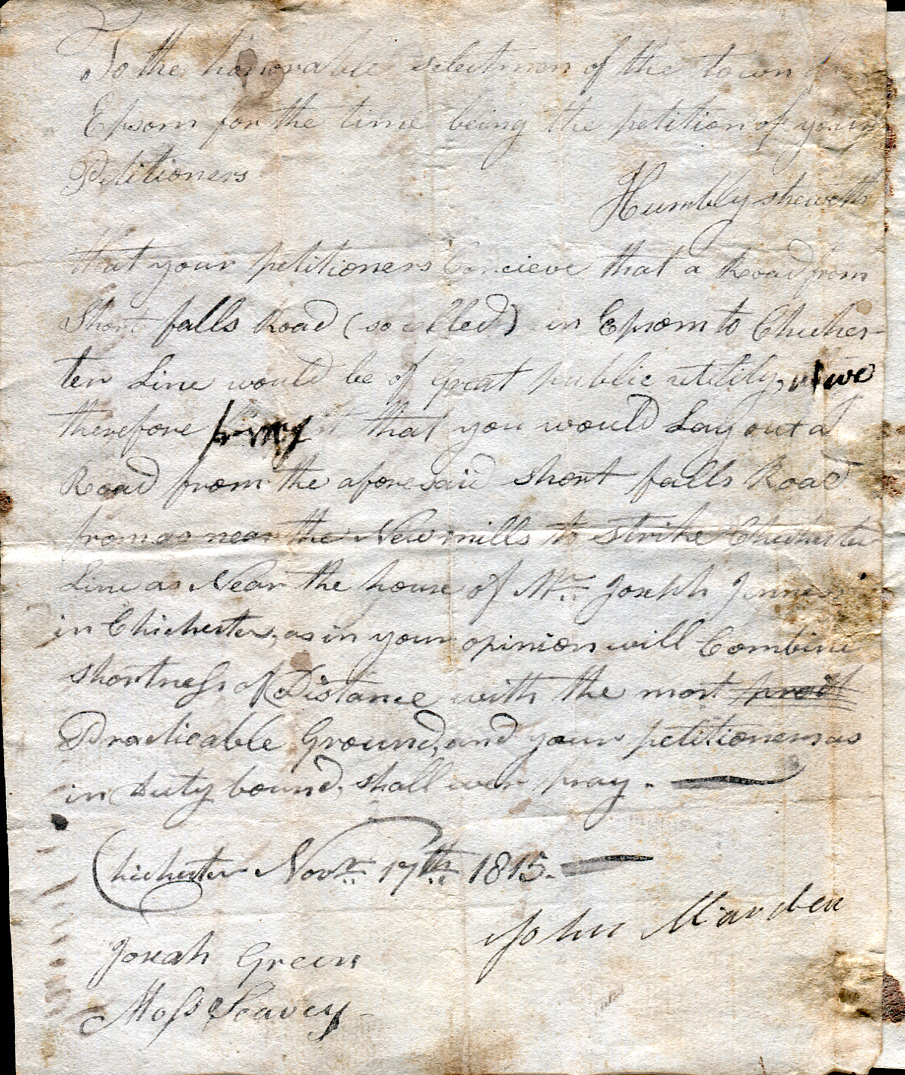 To the honorable selectmen of the town of
Epsom for the time being the petition of your
Petitioners
Humbly sheweth
that your petitioners Concieve that a Road from
Short falls Road (so called) in Epsom to Chiches-
ter Line would be of great public utility, we
therefore pray that you would Lay out a
Road from the aforesaid short falls Road
from as near the New mills to strike Chichester
Line as Near the house of Mr. Joseph Jenness
in Chichester, as in your opinion will Combine
shortness of Distance with the most
Practicable Ground, and your petitioners as
in duty bound, shall ever pray.
Chichester Novr. 17th. 1815.
John Marden
Josiah Green
Moss Seavey